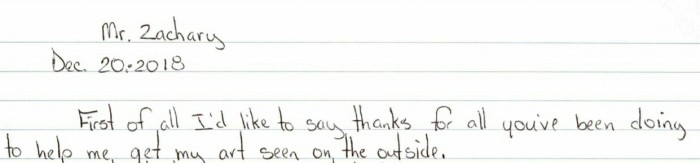 Mr. Zachary
Dec. 20.2018
First of all I'd like to say thanks for all you've been doing
to help me get my art seen on the outside.